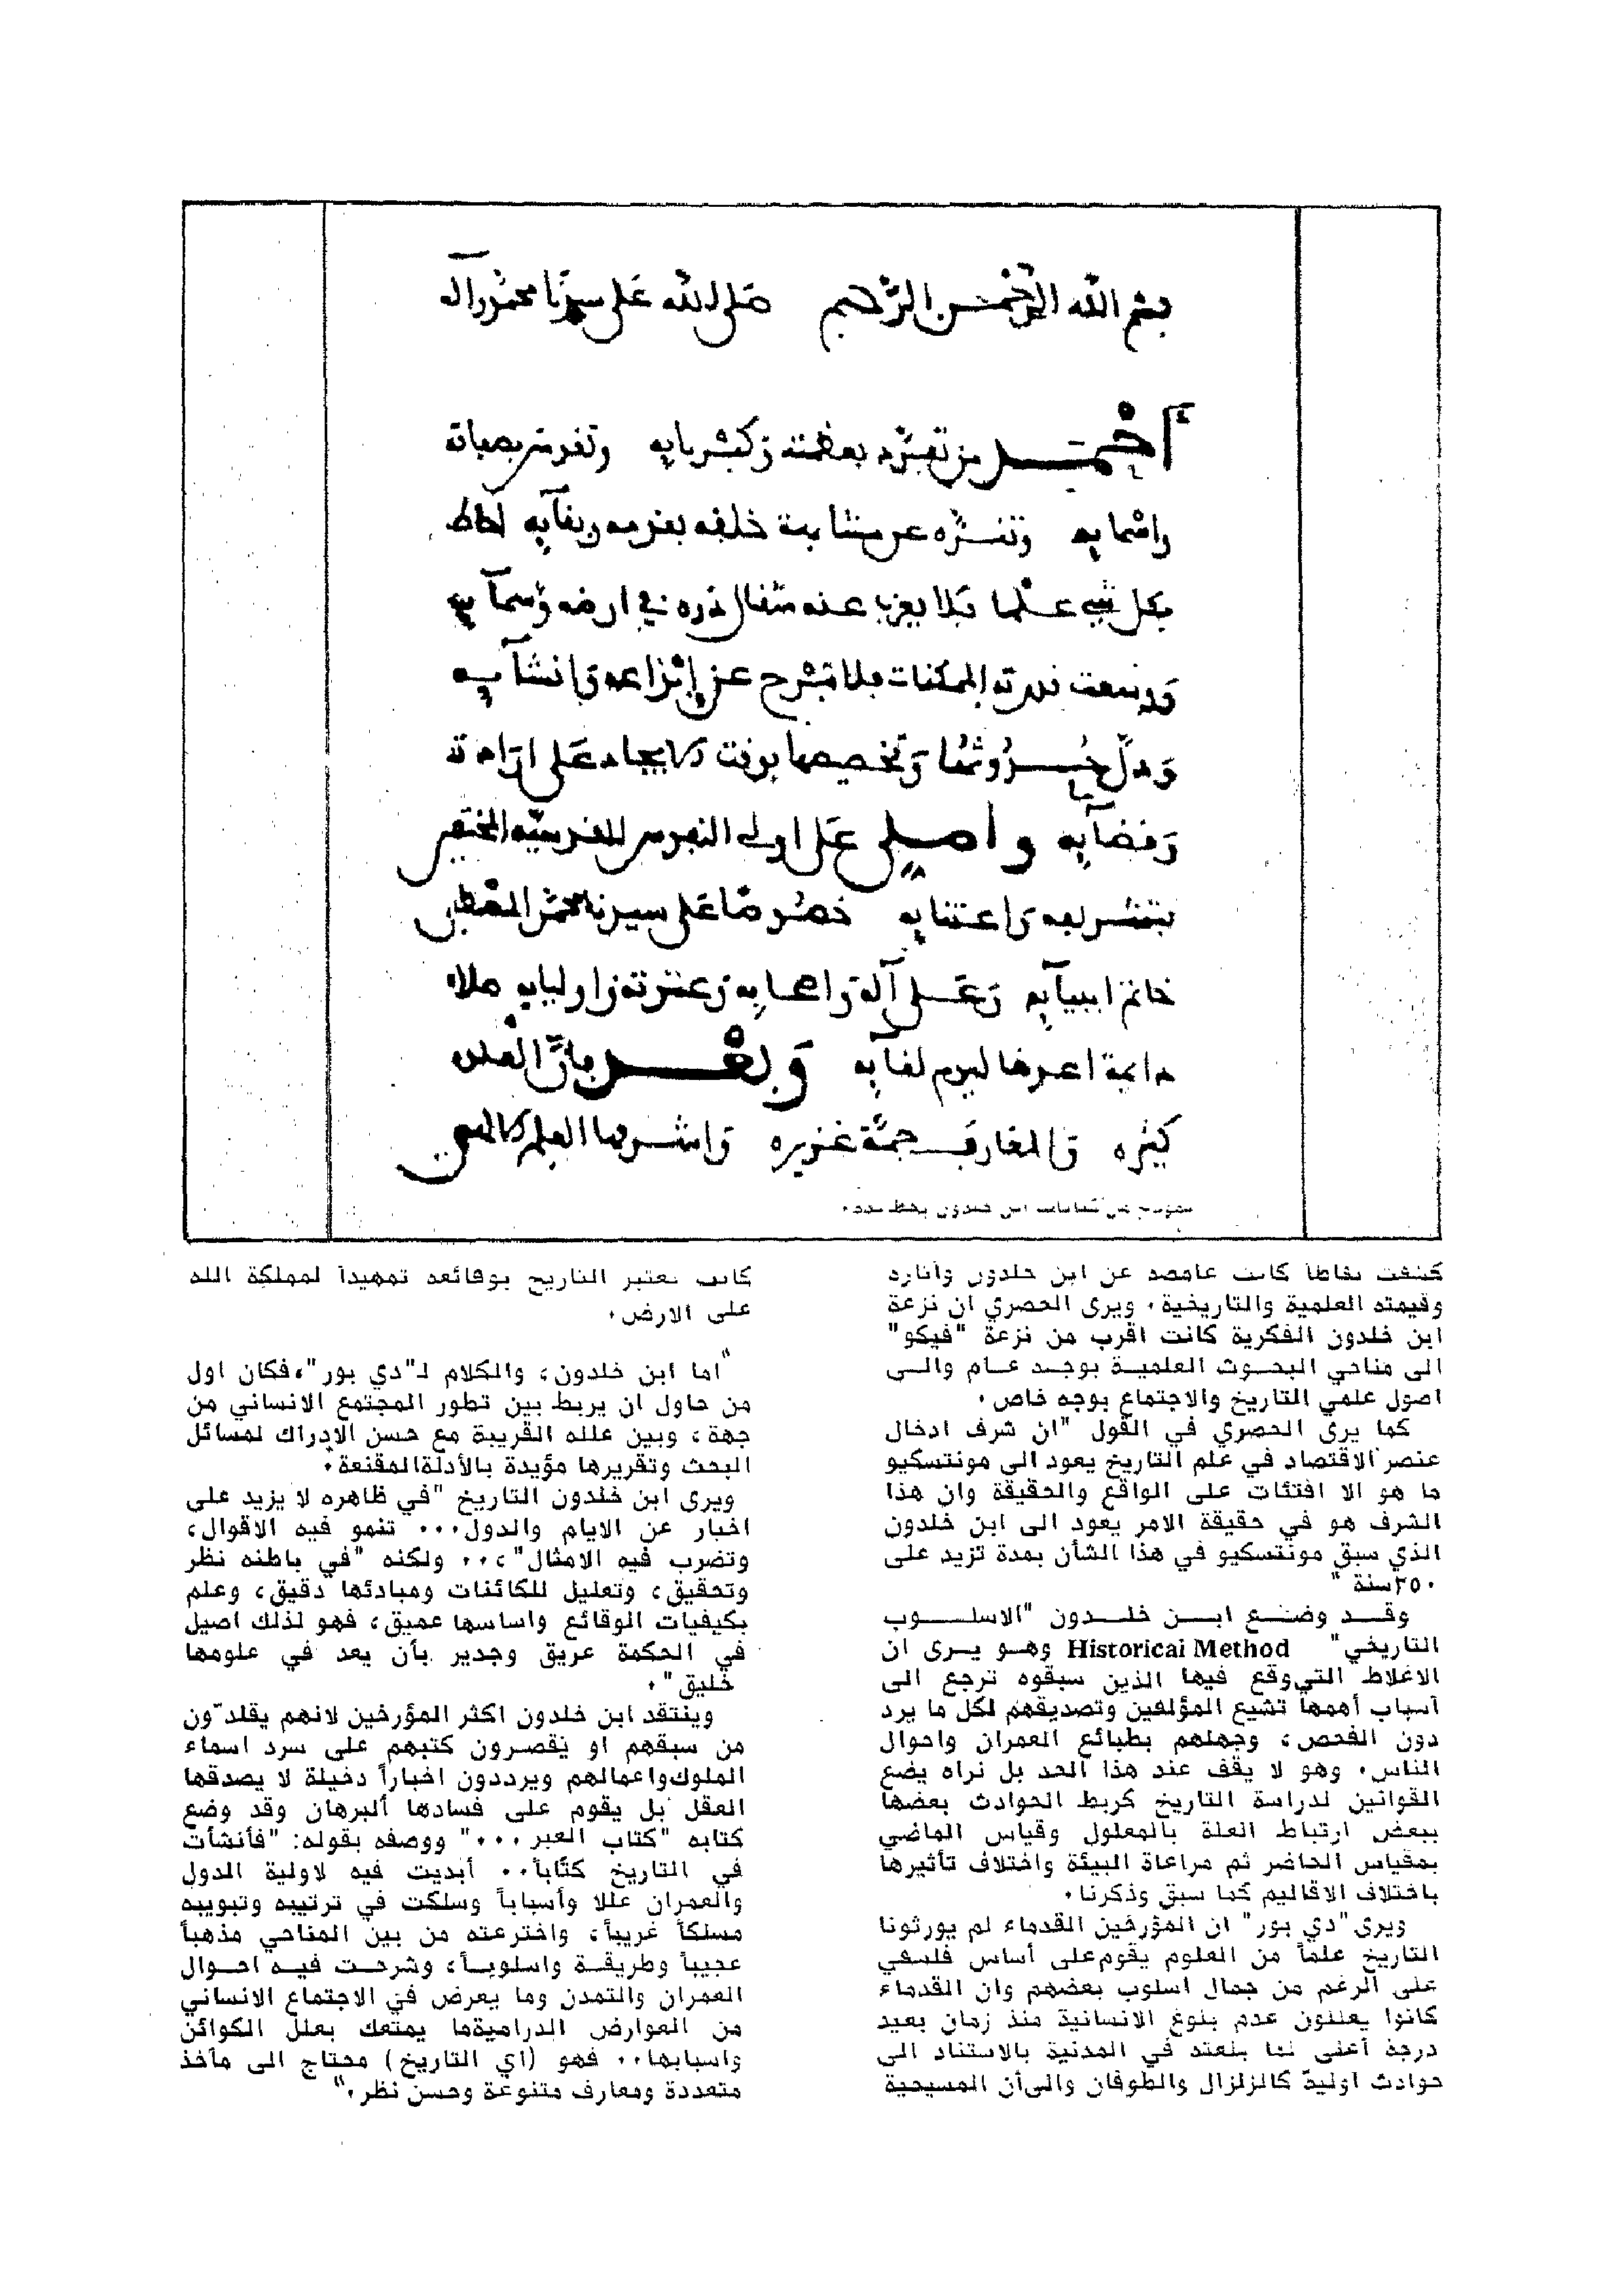 بسم الله الرحمن الرحيم صلى الله على سيدنا محمد وآله
أحمد من تعزز بعظمته وكبريايه وتقدس بصفاته
واسمايه وتنزه عن مشابهة خلقه بقدمه وبقآيه احاط
بكل شيء علما فلا يعزب عنه مثقال ذره في ارضه وسمآيه
ووسعت قدرته الممكنات فلا تبرح عن إبداعه وانشآيه
ودل حدوثها وتخصيصها بوقت الايجاد على ارادته
وقضآيه واصلي على اولي النفوس القدسيه المختصين
بتشريفه واعتنايه خصوصا على سيدنا محمد المصطفى
خاتم انبيآيه وعلى آله واصحابه وعترته واوليايه صلاة
دايمة اعدها ليوم لقآيه وبعد فإن العلوم
كثيره والمعارف جمة غزيره واشرفها العلم الالهي
نموذج من كتابات ابن خلدون بخط يده.
كشفت نقاطا كانت غامضه عن ابن خلدون وآثاره
وقيمته العلمية والتاريخية. ويرى الحصري ان نزعة
ابن خلدون الفكرية كانت اقرب من نزعة "فيكو"
الى مناحي البحوث العلمية بوجه عام والى
اصول علمي التاريخ والاجتماع بوجه خاص.
كما يرى الحصري في القول "ان شرف ادخال
عنصر الاقتصاد في علم التاريخ يعود الى مونتسكيو
ما هو الا افتئات على الواقع والحقيقة وان هذا
الشرف هو في حقيقة الامر يعود الى ابن خلدون
الذي سبق مونتسكيو في هذا الشأن بمدة تزيد على
٣٥٠ سنة"
وقد وضع ابن خلدون "الاسلوب
التاريخي" Historical Method وهو يرى ان
الاغلاط التي وقع فيها الذين سبقوه ترجع الى
أسباب أهمها تشيع المؤلفين وتصديقهم لكل ما يرد
دون الفحص، وجهلهم بطبائع العمران واحوال
الناس. وهو لا يقف عند هذا الحد بل نراه يضع
القوانين لدراسة التاريخ كربط الحوادث بعضها
ببعض ارتباط العلة بالمعلول وقياس الماضي
بمقياس الحاضر ثم مراعاة البيئة واختلاف تأثيرها
باختلاف الاقاليم كما سبق وذكرنا.
ويرى "دي بور" ان المؤرخين القدماء لم يورثونا
التاريخ علماً من العلوم يقوم على أساس فلسفي
على الرغم من جمال اسلوب بعضهم وان القدماء
كانوا يعللون عدم بلوغ الانسانية منذ زمان بعيد
درجة أعلى مما بلغته في المدنية بالاستناد الى
حوادث اوليّة كالزلزال والطوفان والى أن المسيحية
كانت تعتبر التاريخ بوقائعه تمهيداً لمملكة الله
على الارض.
"اما ابن خلدون، والكلام لـ"دي بور"، فكان اول
من حاول ان يربط بين تطور المجتمع الانساني من
جهة، وبين علله القريبة مع حسن الادراك لمسائل
البحث وتقريرها مؤيدة بالأدلة المقنعة.
ويرى ابن خلدون التاريخ "في ظاهره لا يزيد على
اخبار عن الايام والدول... تنمو فيه الاقوال،
وتضرب فيه الامثال"،.. ولكنه "في باطنه نظر
وتحقيق، وتعليل للكائنات ومبادئها دقيق، وعلم
بكيفيات الوقائع واساسها عميق، فهو لذلك اصيل
في الحكمة عريق وجدير بأن يعد في علومها
خليق".
وينتقد ابن خلدون اكثر المؤرخين لانهم يقلدّون
من سبقهم او يقصرون كتبهم على سرد اسماء
الملوك واعمالهم ويرددون اخباراً دخيلة لا يصدقها
العقل بل يقوم على فسادها ألبرهان وقد وضع
كتابه "كتاب العبر..." ووصفه بقوله: "فأنشأت
في التاريخ كتاباً.. أبديت فيه لاولية الدول
والعمران عللا وأسباباً وسلكت في ترتيبه وتبويبه
مسلكاً غريباً، واخترعته من بين المناحي مذهباً
عجيباً وطريقة واسلوباً، وشرحت فيه احوال
العمران والتمدن وما يعرض في الاجتماع الانساني
من العوارض الدراميةما يمتعك بعلل الكوائن
واسبابها.. فهو (اي التاريخ) محتاج الى مآخذ
متعددة ومعارف متنوعة وحسن نظر."